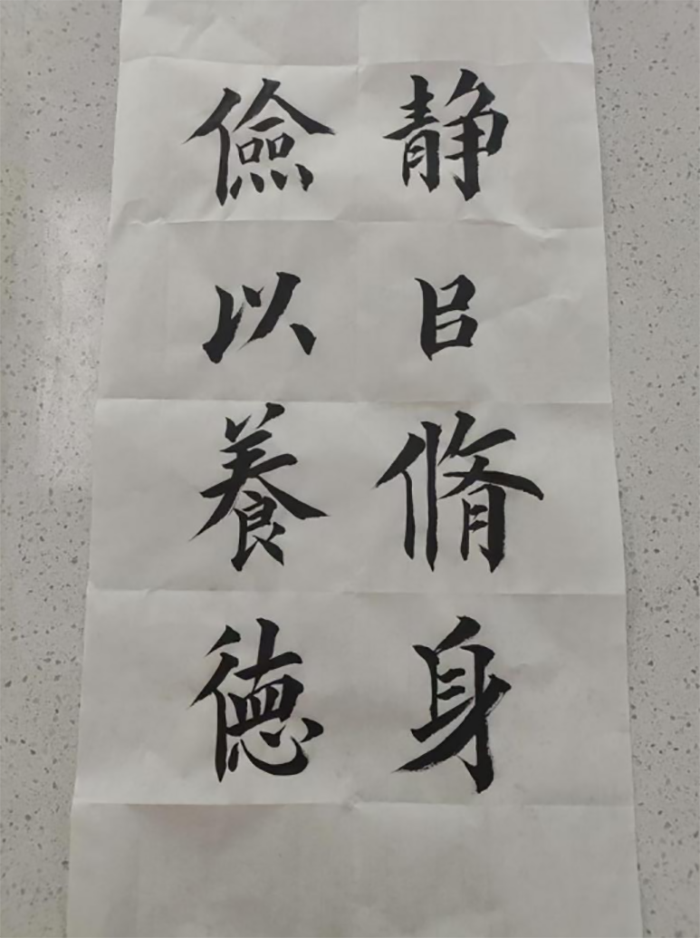 静㠯脩身
儉以養徳